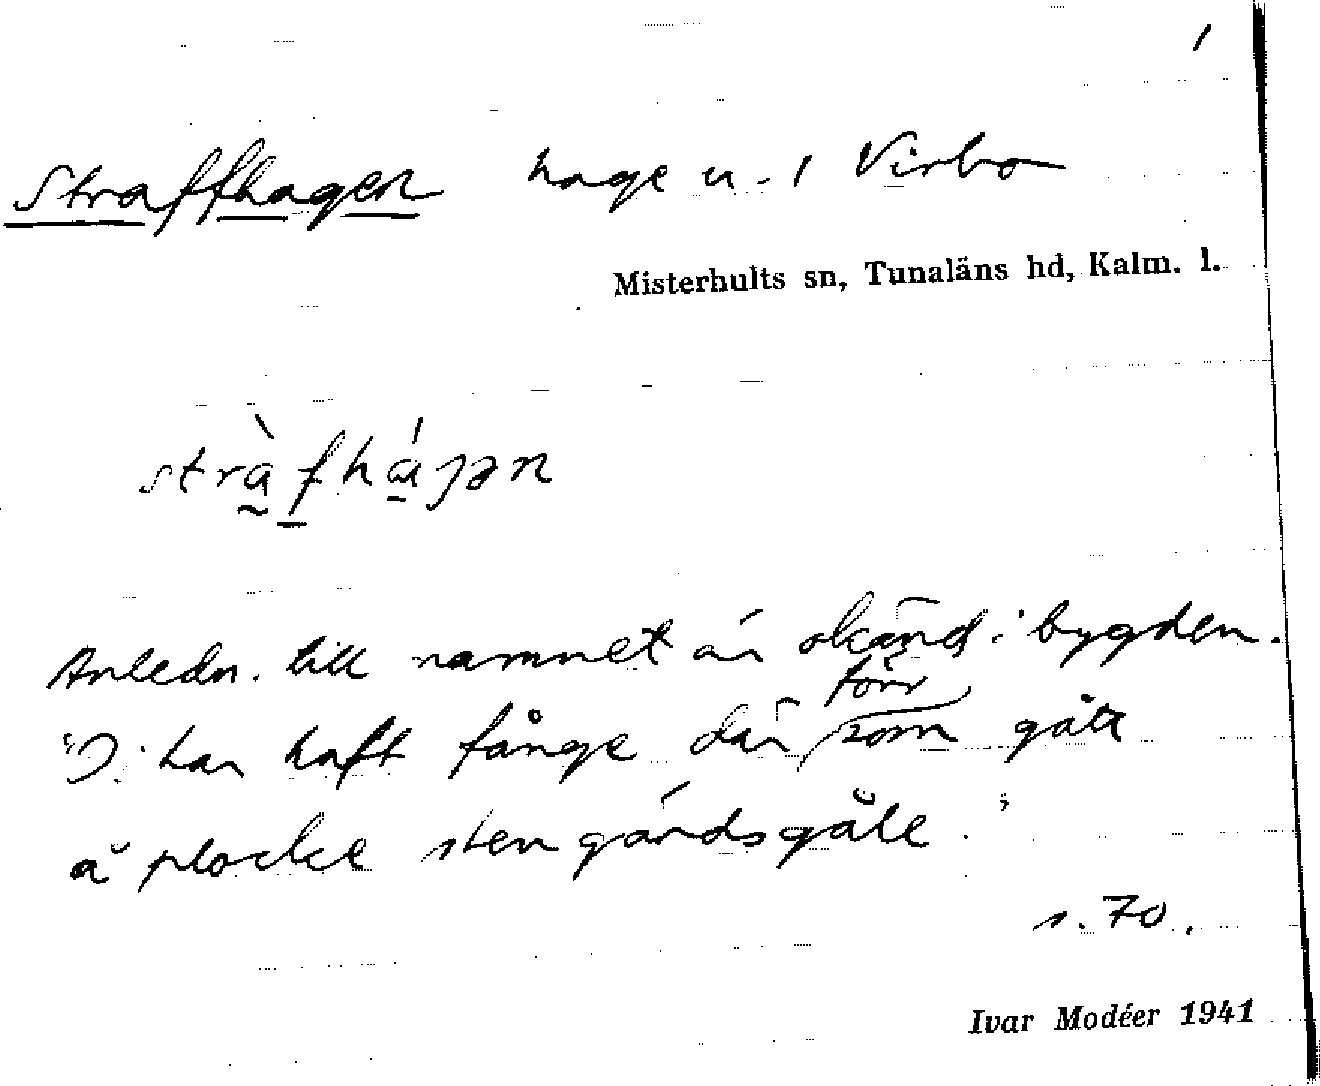 1
Straffhagen hage u. 1 Virbo
Misterhults sn, Tunaläns hd, Kalm. l.
stràfháɡən
Anledn. till namnet är okänd i bygden.
"D: har haft fånge där förr som gått
å plocke stengårdsgåle."
s. 70.
Ivar Modéer 1941